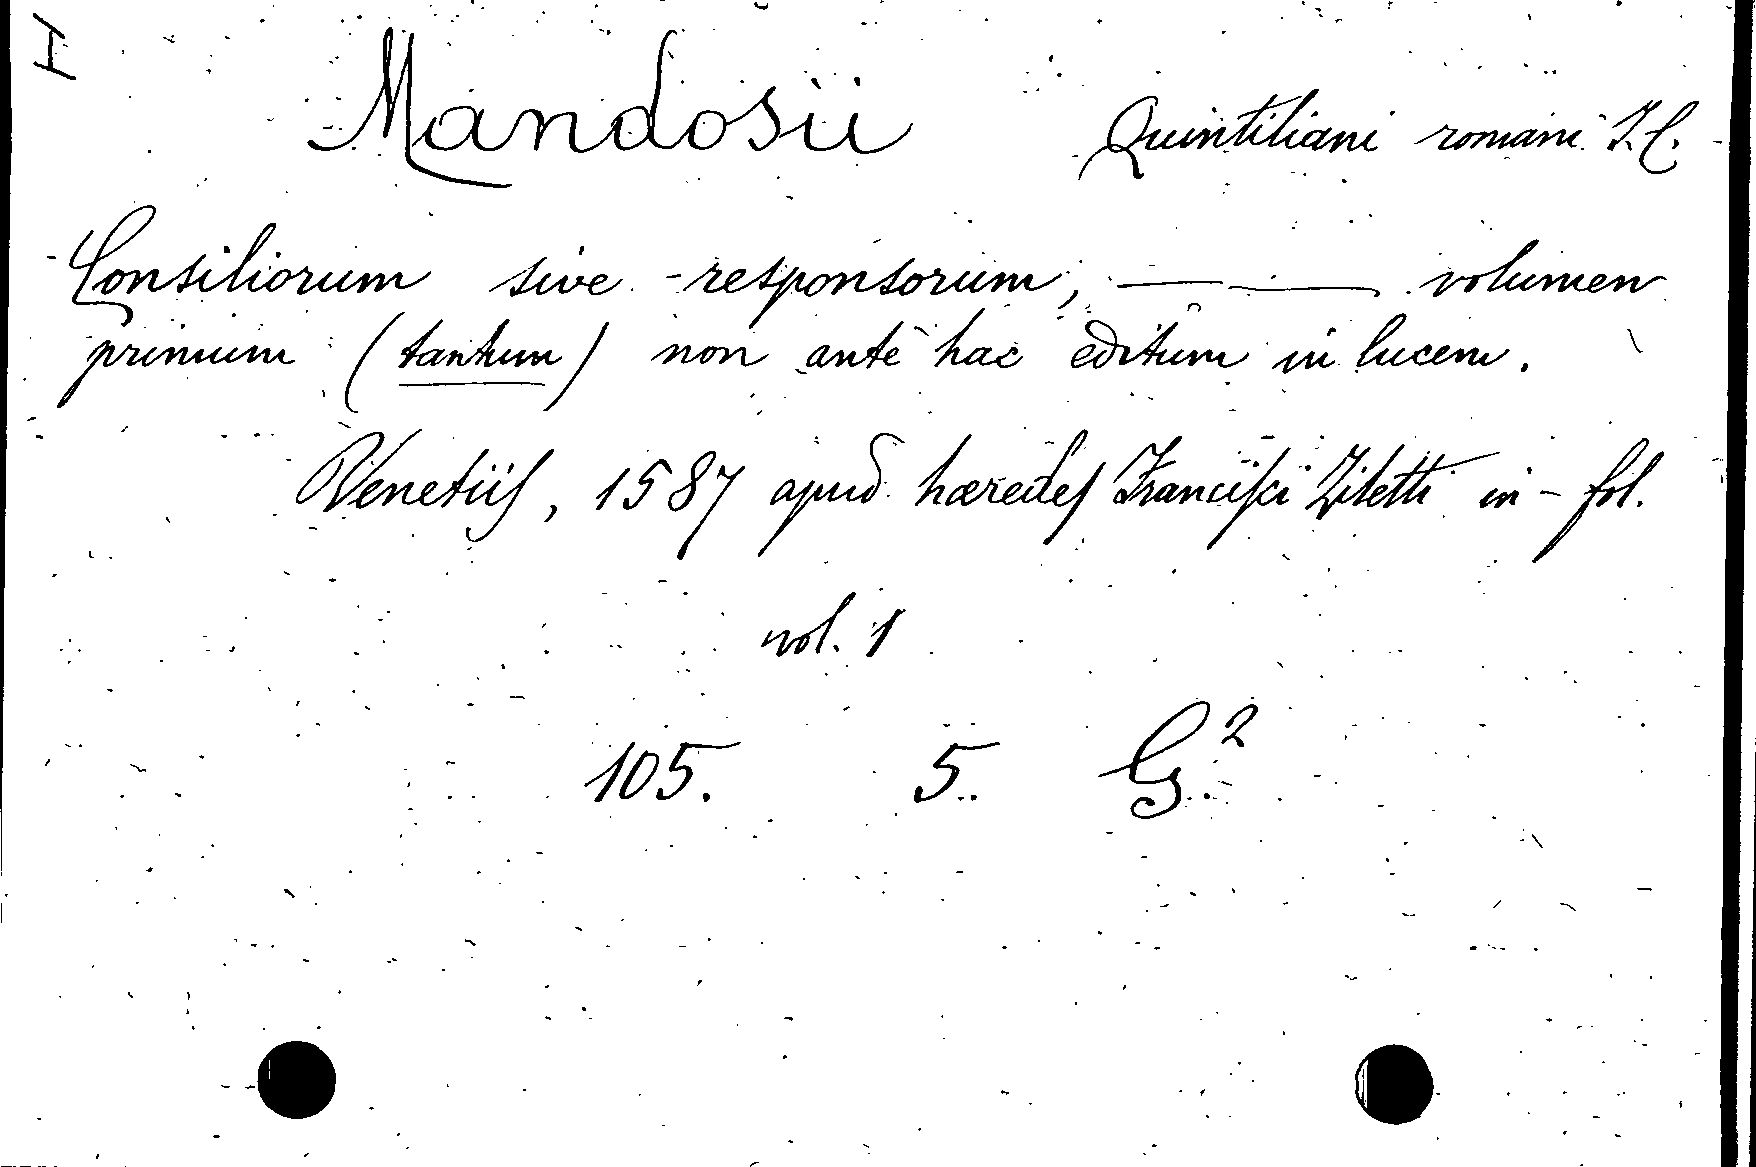 I
Mandosii Quintiliani romani I.C.
Consiliorum sive responsorum, —— —— volumen
primum (tantum) non ante hac editum in lucem.
Venetiis, 1587 apud hæredes Francisci Ziletti in-fol.
vol. 1
105. 5. G.²